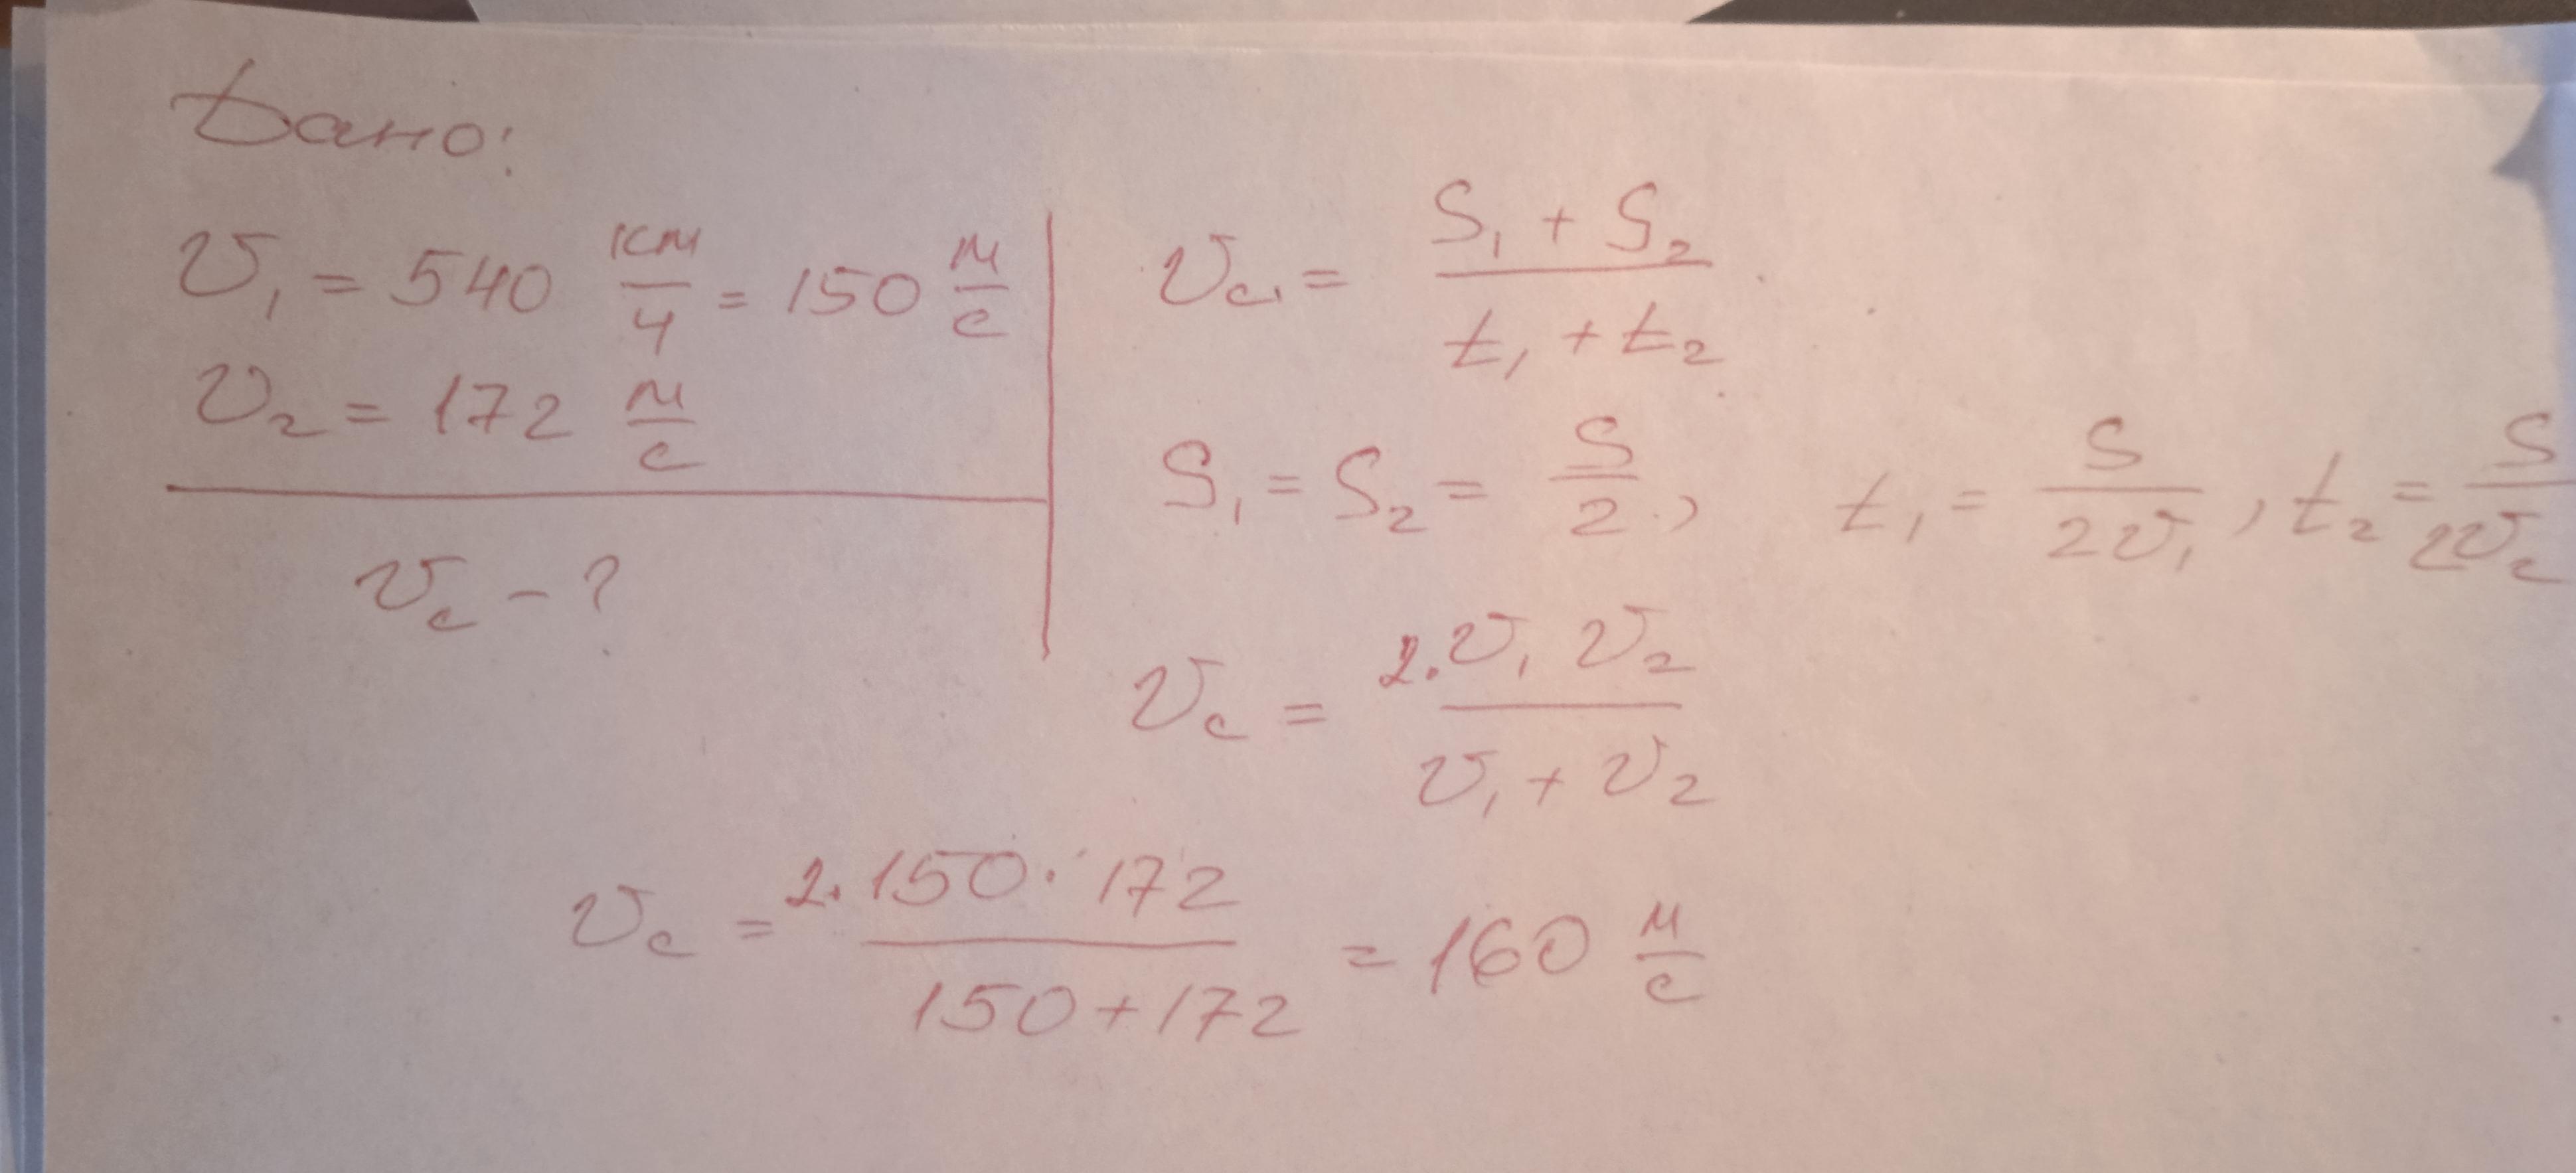 Дано:
υ₁ = 540 км/ч = 150 м/с
υ₂ = 172 м/с
υс - ?
υс₁ = (S₁ + S₂)/(t₁ + t₂)
S₁ = S₂ = S/2, t₁ = S/(2υ₁), t₂ = S/(2υ₂)
υс = (2·υ₁ υ₂)/(υ₁ + υ₂)
υс = (2·150·172)/(150+172) = 160 м/с